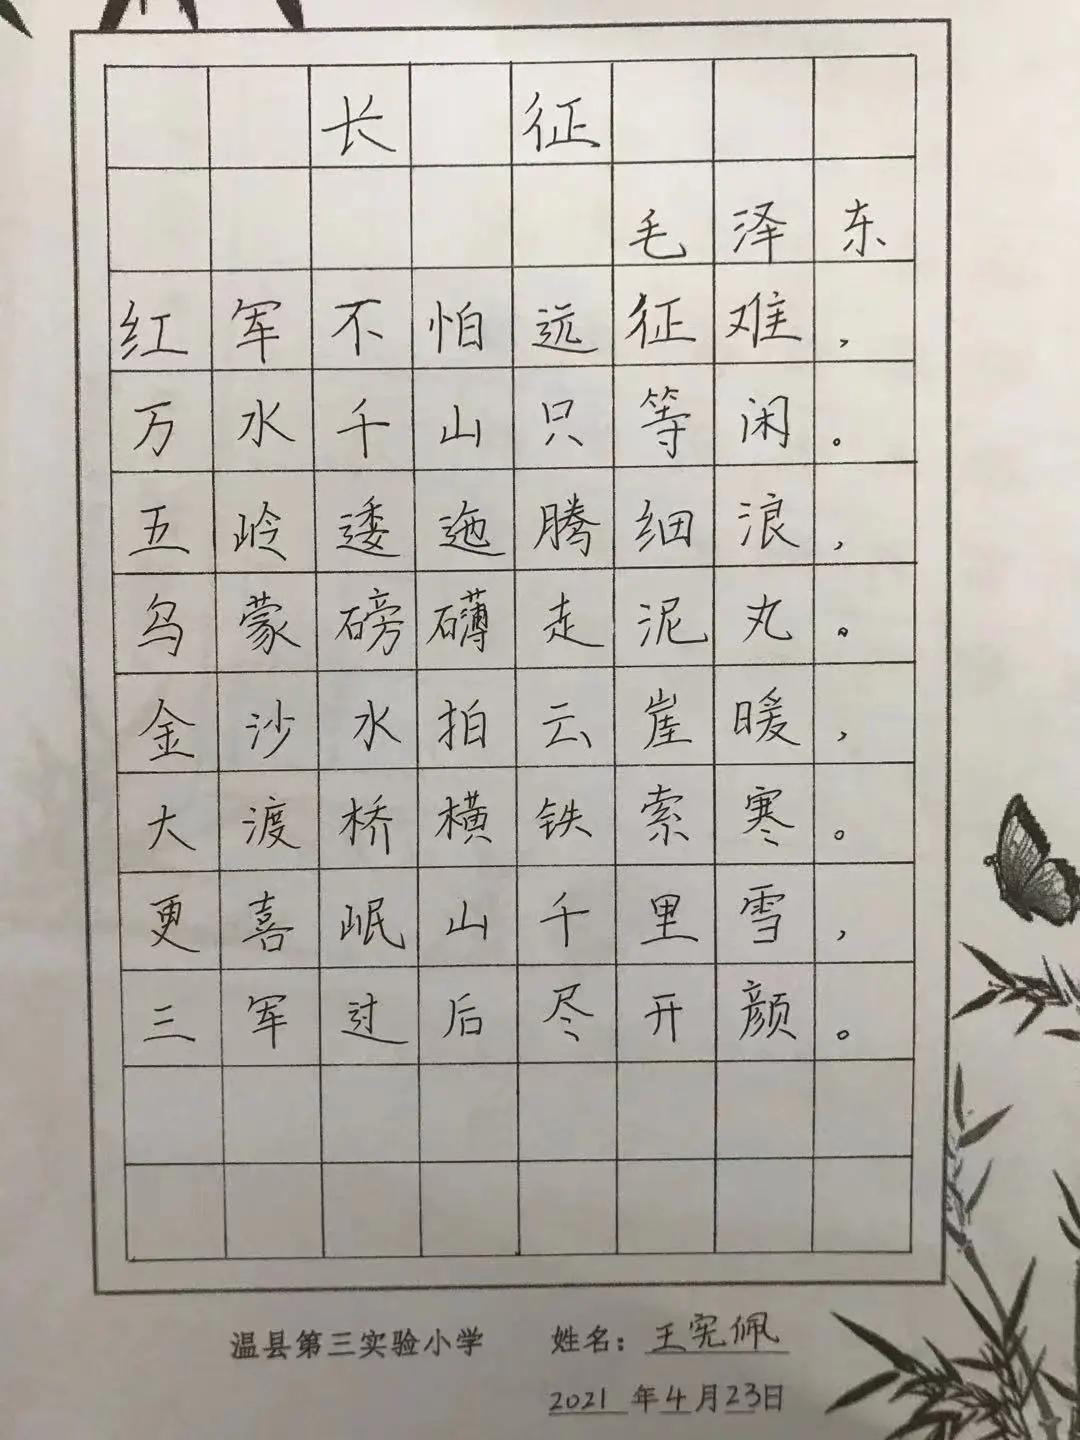 长征
毛泽东
红军不怕远征难，
万水千山只等闲。
五岭逶迤腾细浪，
乌蒙磅礴走泥丸。
金沙水拍云崖暖，
大渡桥横铁索寒。
更喜岷山千里雪，
三军过后尽开颜。
温县第三实验小学 姓名：王宪佩
2021年4月23日